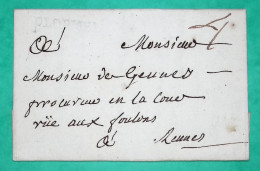 A Monsieur
Monsieur de Gennes
procureur en la Cour
rüe aux foulons
A Rennes